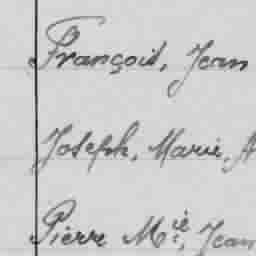 François, Jean
Joseph, Marie,
Pierre Mie, Jean